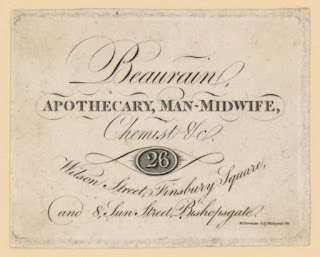 Beaurain,
APOTHECARY, MAN-MIDWIFE,
Chemist &c.
26
Wilson Street, Finsbury Square,
and 8, Sun Street, Bishopsgate.